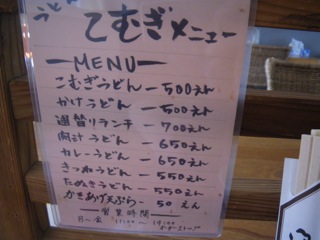 うど
こむぎメニュー
ーMENUー
こむぎうどんー500えん
かけうどんー500えん
週替りランチー700えん
肉汁うどんー650えん
カレーうどんー650えん
きつねうどんー550えん
たぬきうどんー550えん
かきあげ天ぷらー50えん
ー営業時間ー
月〜金 11:00〜 14:00
オーダーストップ